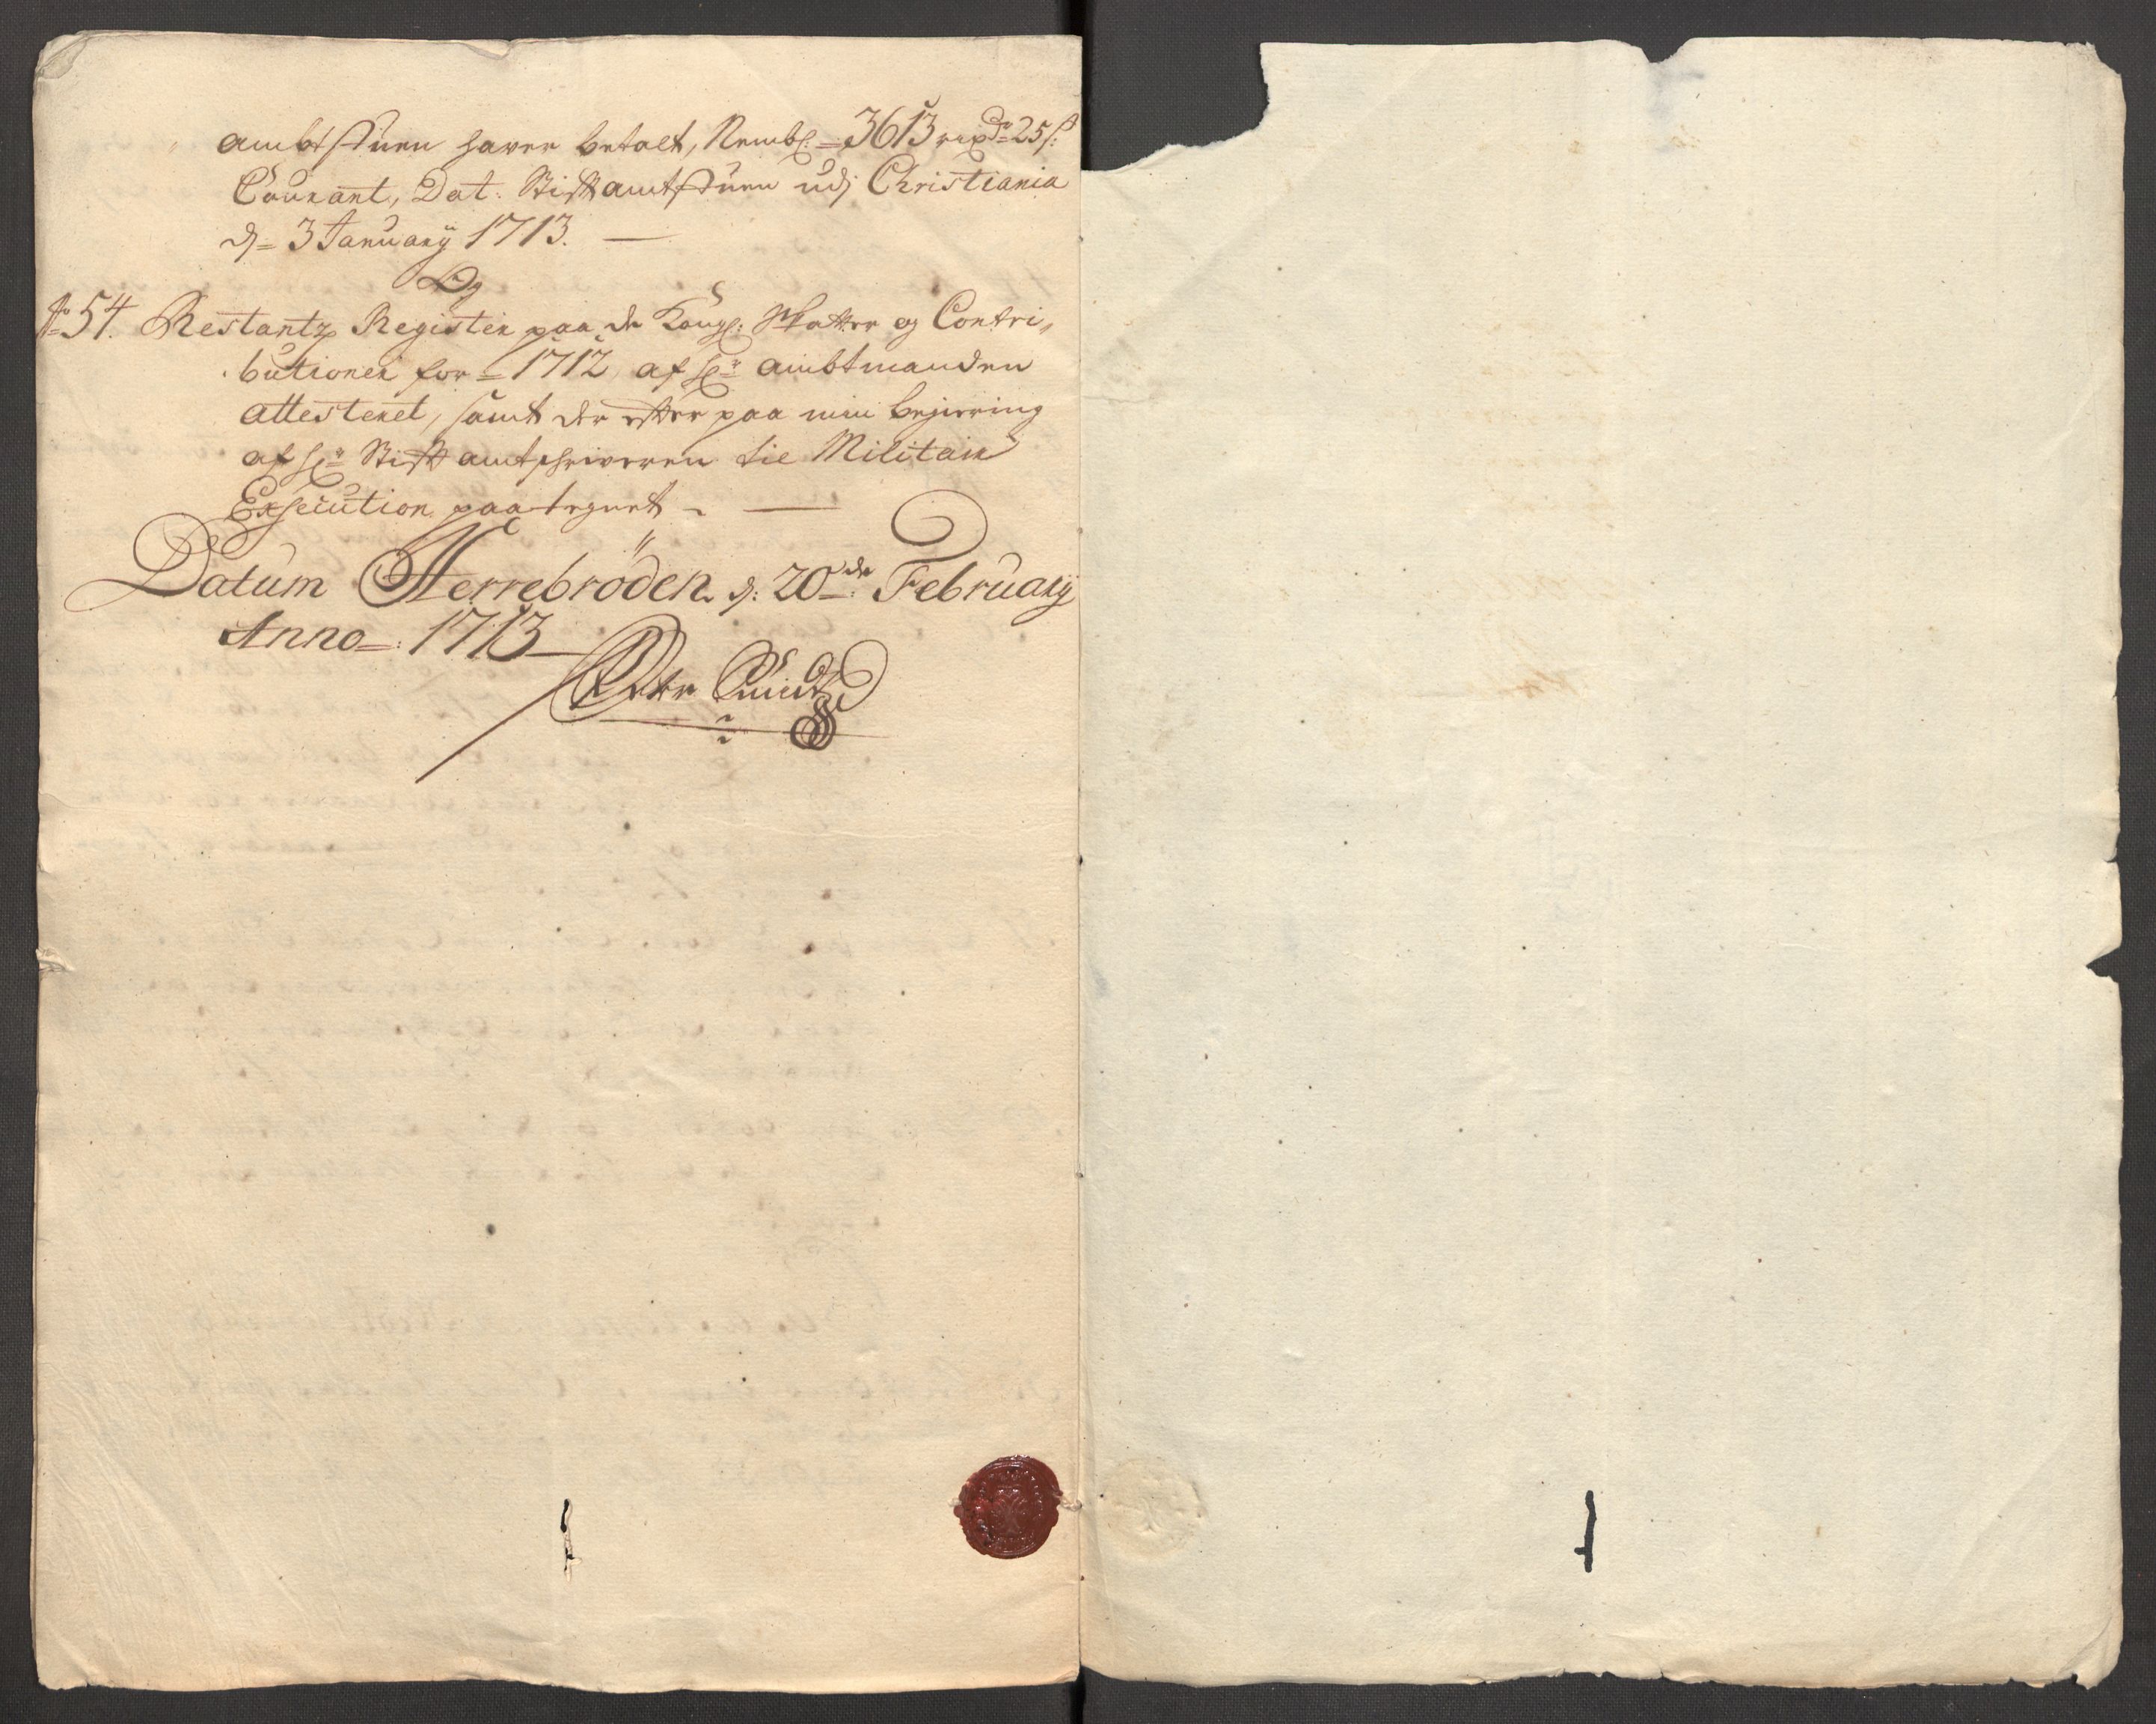 ambtstuen haver betalt, Nembl: = 3613 rixdr = 25 s:
Courant, Dat: Stiftamtstuen udj Christiania
d = 3 January 1713. —
Og
No 54. Restantz Register paa de Kongl: Skatter og Contri,,
butioner for = 1712 af Hr: ambtmanden
attesteret, samt der effter paa min begiering
af Hr: Stiftamtschriveren til Militair
Exsecution paategnet —
Datum Herrebröden d: 20de February
Anno =: 1713 —
Peter